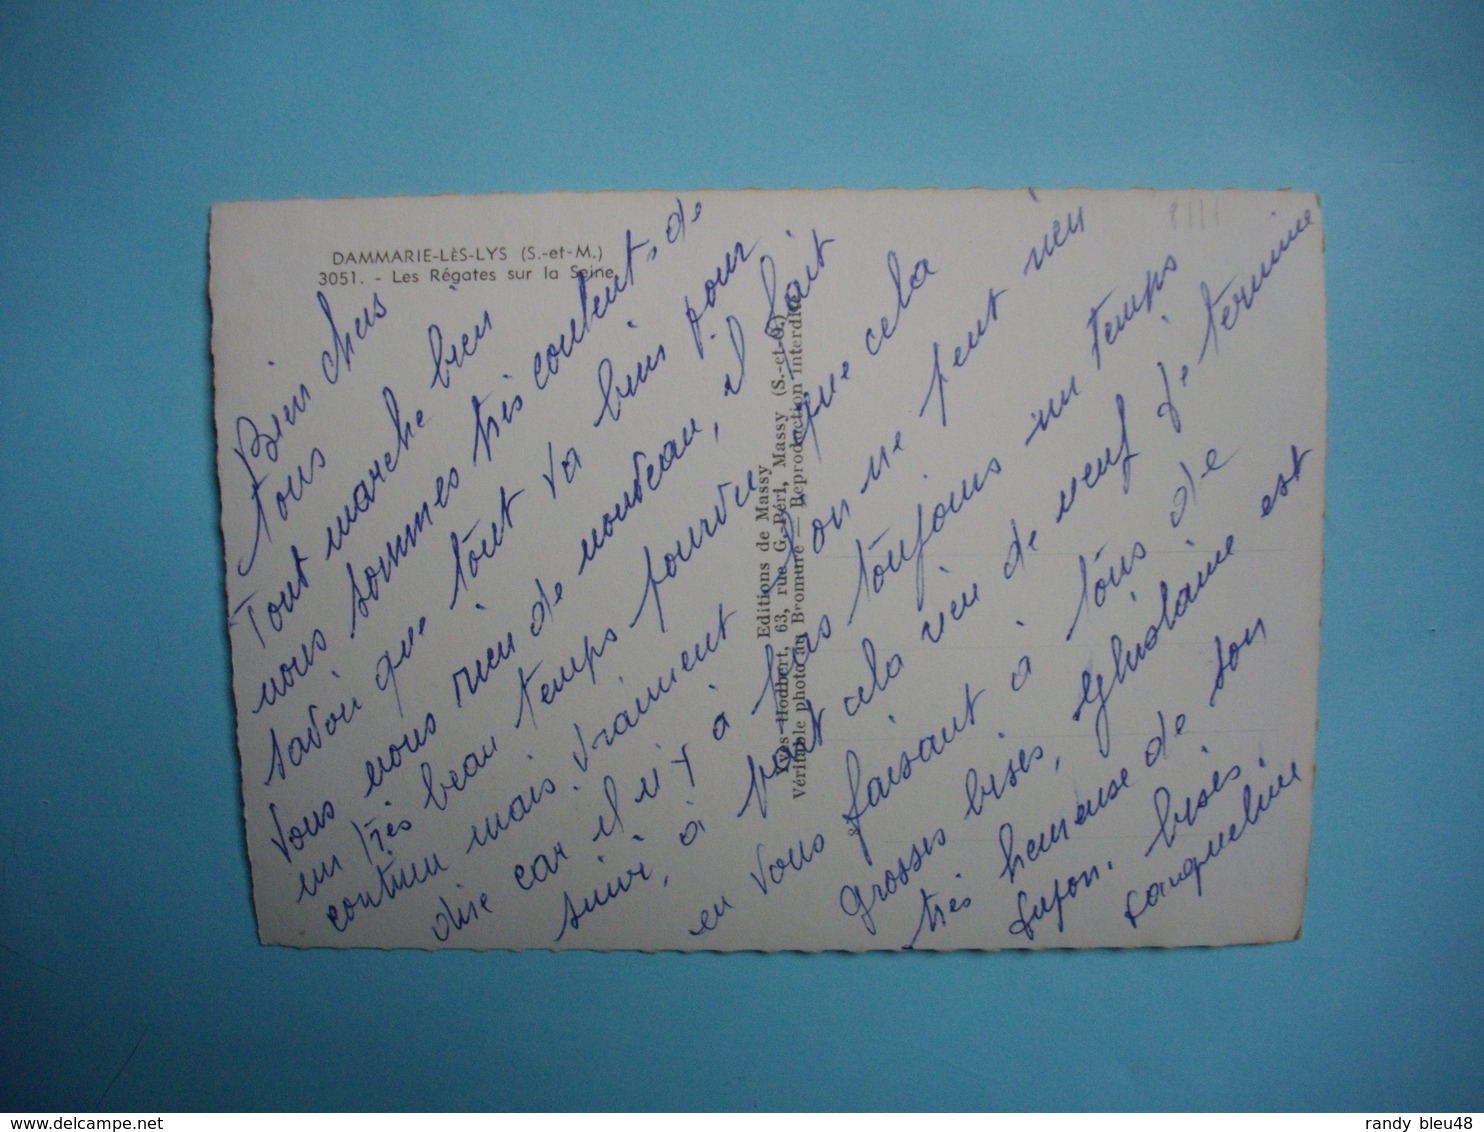 DAMMARIE-LÈS-LYS (S.-et-M.)
3051. - Les Régates sur la Seine
Bien chers
tous
Tout marche bien
nous sommes très content, de
savoir que tout va bien pour
vous nous rien de nouveau, il fait
un très beau temps pourvu que cela
continu mais vraiment l'on ne peut rien
dire car il n'y à pas toujours un temps
suivi, à part cela rien de neuf je termine
en vous faisant à tous de
grosses bises, Ghislaine est
très heureuse de son
bises.
Jacqueline
Editions de Massy
Yves Hodbert, 63, rue G.-Péri, Massy (S.-et-O.)
Véritable photo au Bromure — Reproduction interdite
delcampe.net
randy_bleu48